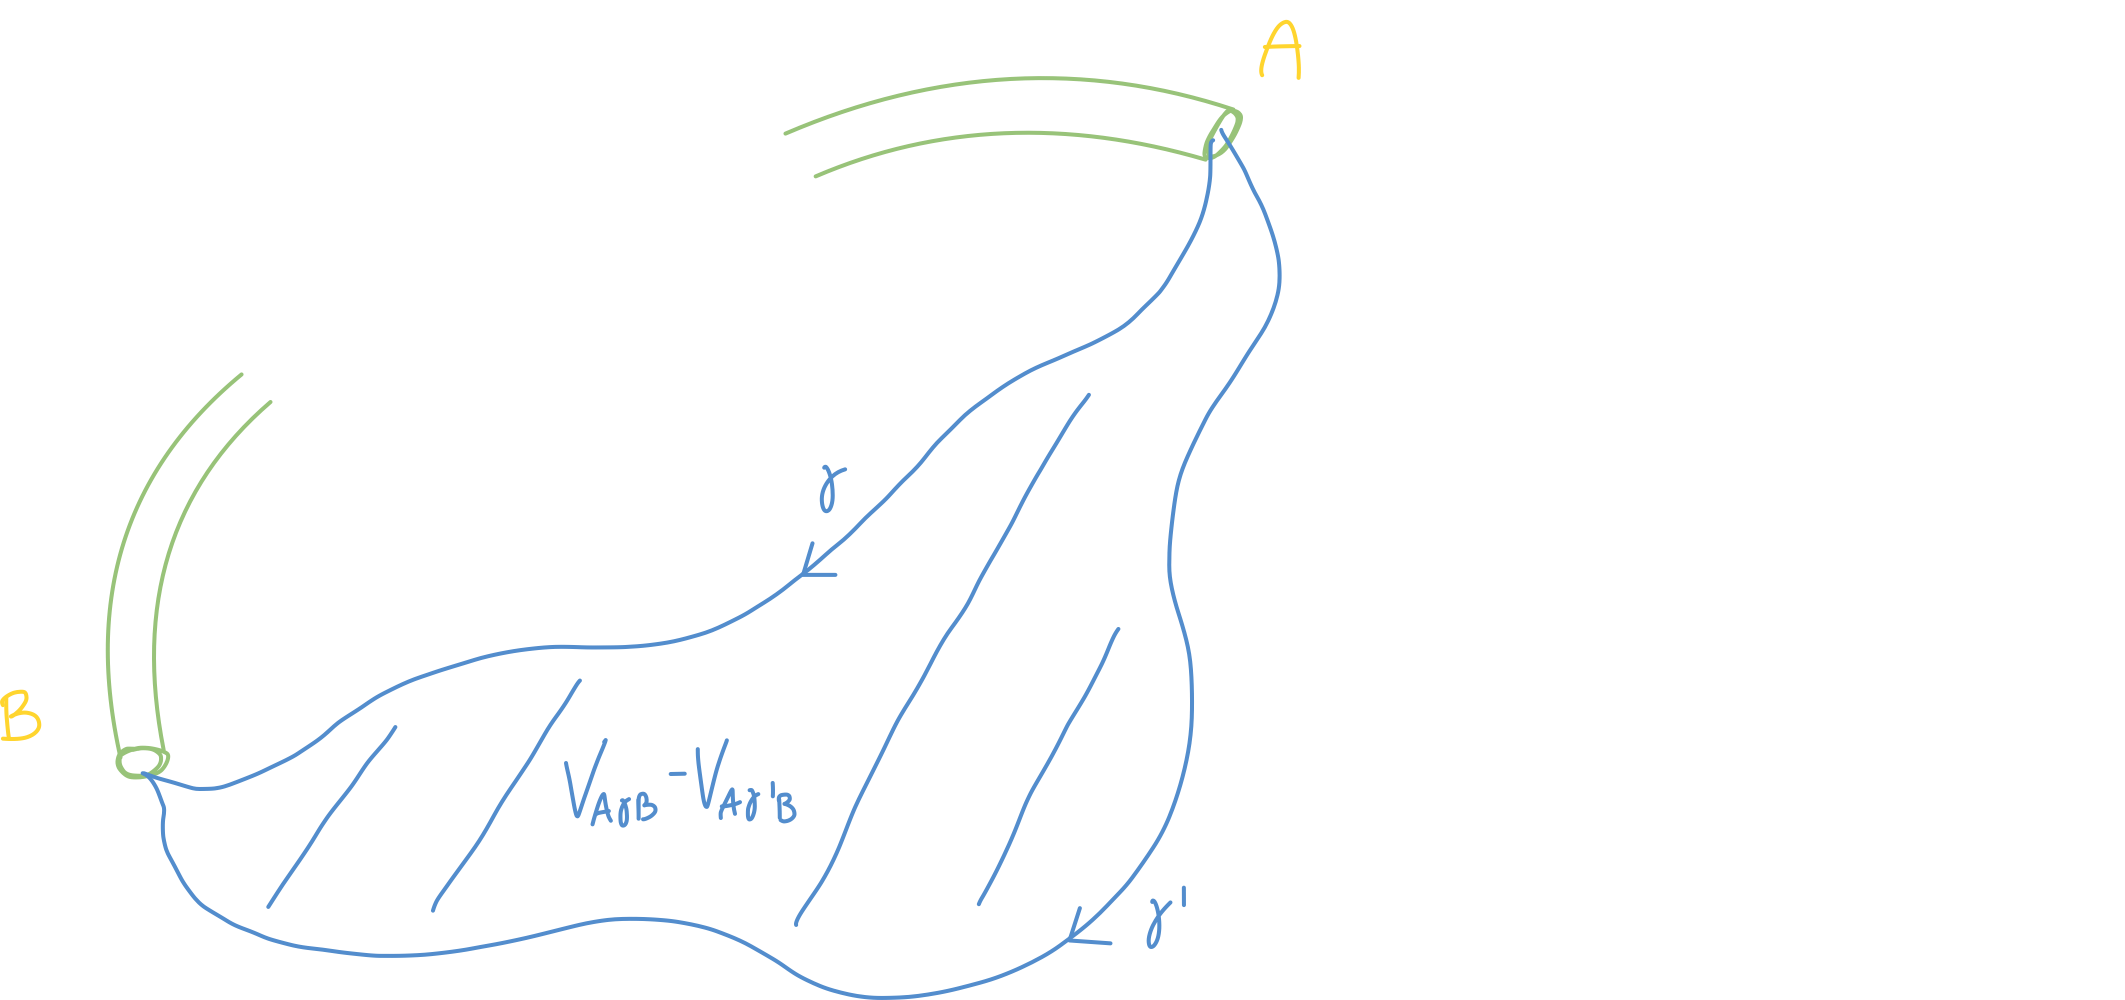 A
γ
B
V_{AγB} - V_{Aγ'B}
γ'